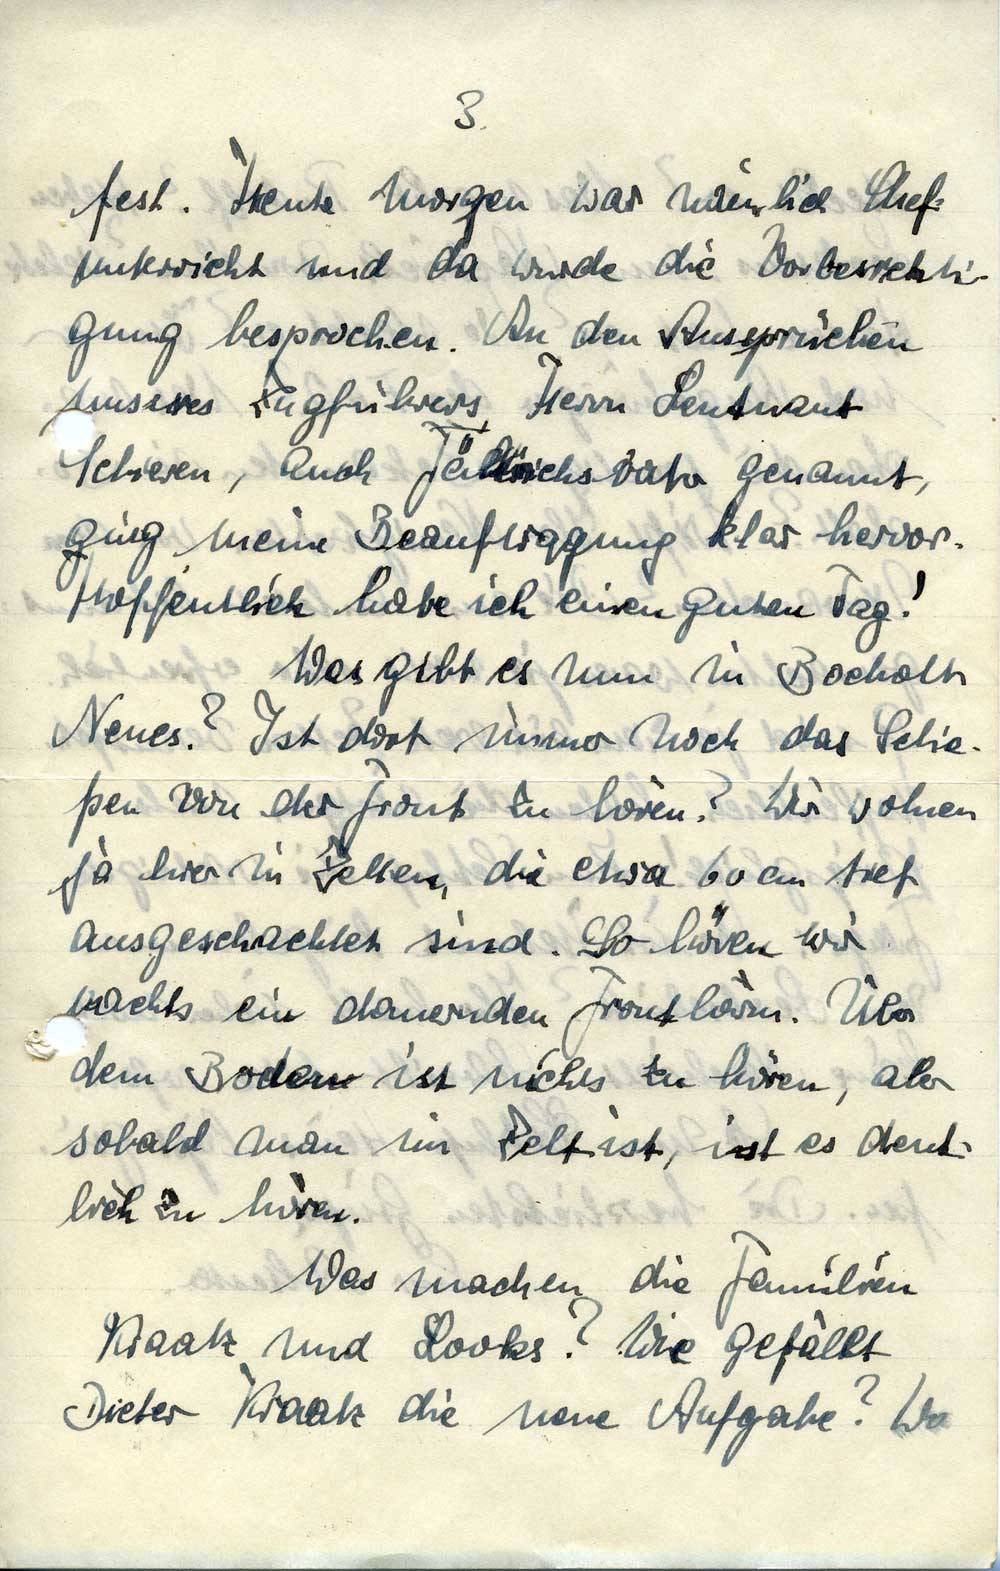 3.
fest. Heute morgen war nämlich Chef-
unterricht und da wurde die Vorbesichti-
gung besprochen. An den Aussprüchen
unseres Zugführers, Herrn Leutnant
Schieren, auch Fähnrichsvater genannt,
ging meine Beauftragung klar hervor.
Hoffentlich habe ich einen guten Tag!
Was gibt es nun in Bocholt
Neues? Ist dort immer noch das Schie-
ßen von der Front zu hören? Wir wohnen
ja hier in Zelten, die etwa 60 cm tief
ausgeschachtet sind. So hören wir
nachts ein dauernden Frontlärm. Über
dem Boden ist nichts zu hören, aber
sobald man im Zelt ist, ist es deut-
lich zu hören.
Was machen die Familien
Kraatz und Looks? Wie gefällt
Dieter Kraatz die neue Aufgabe? Wo